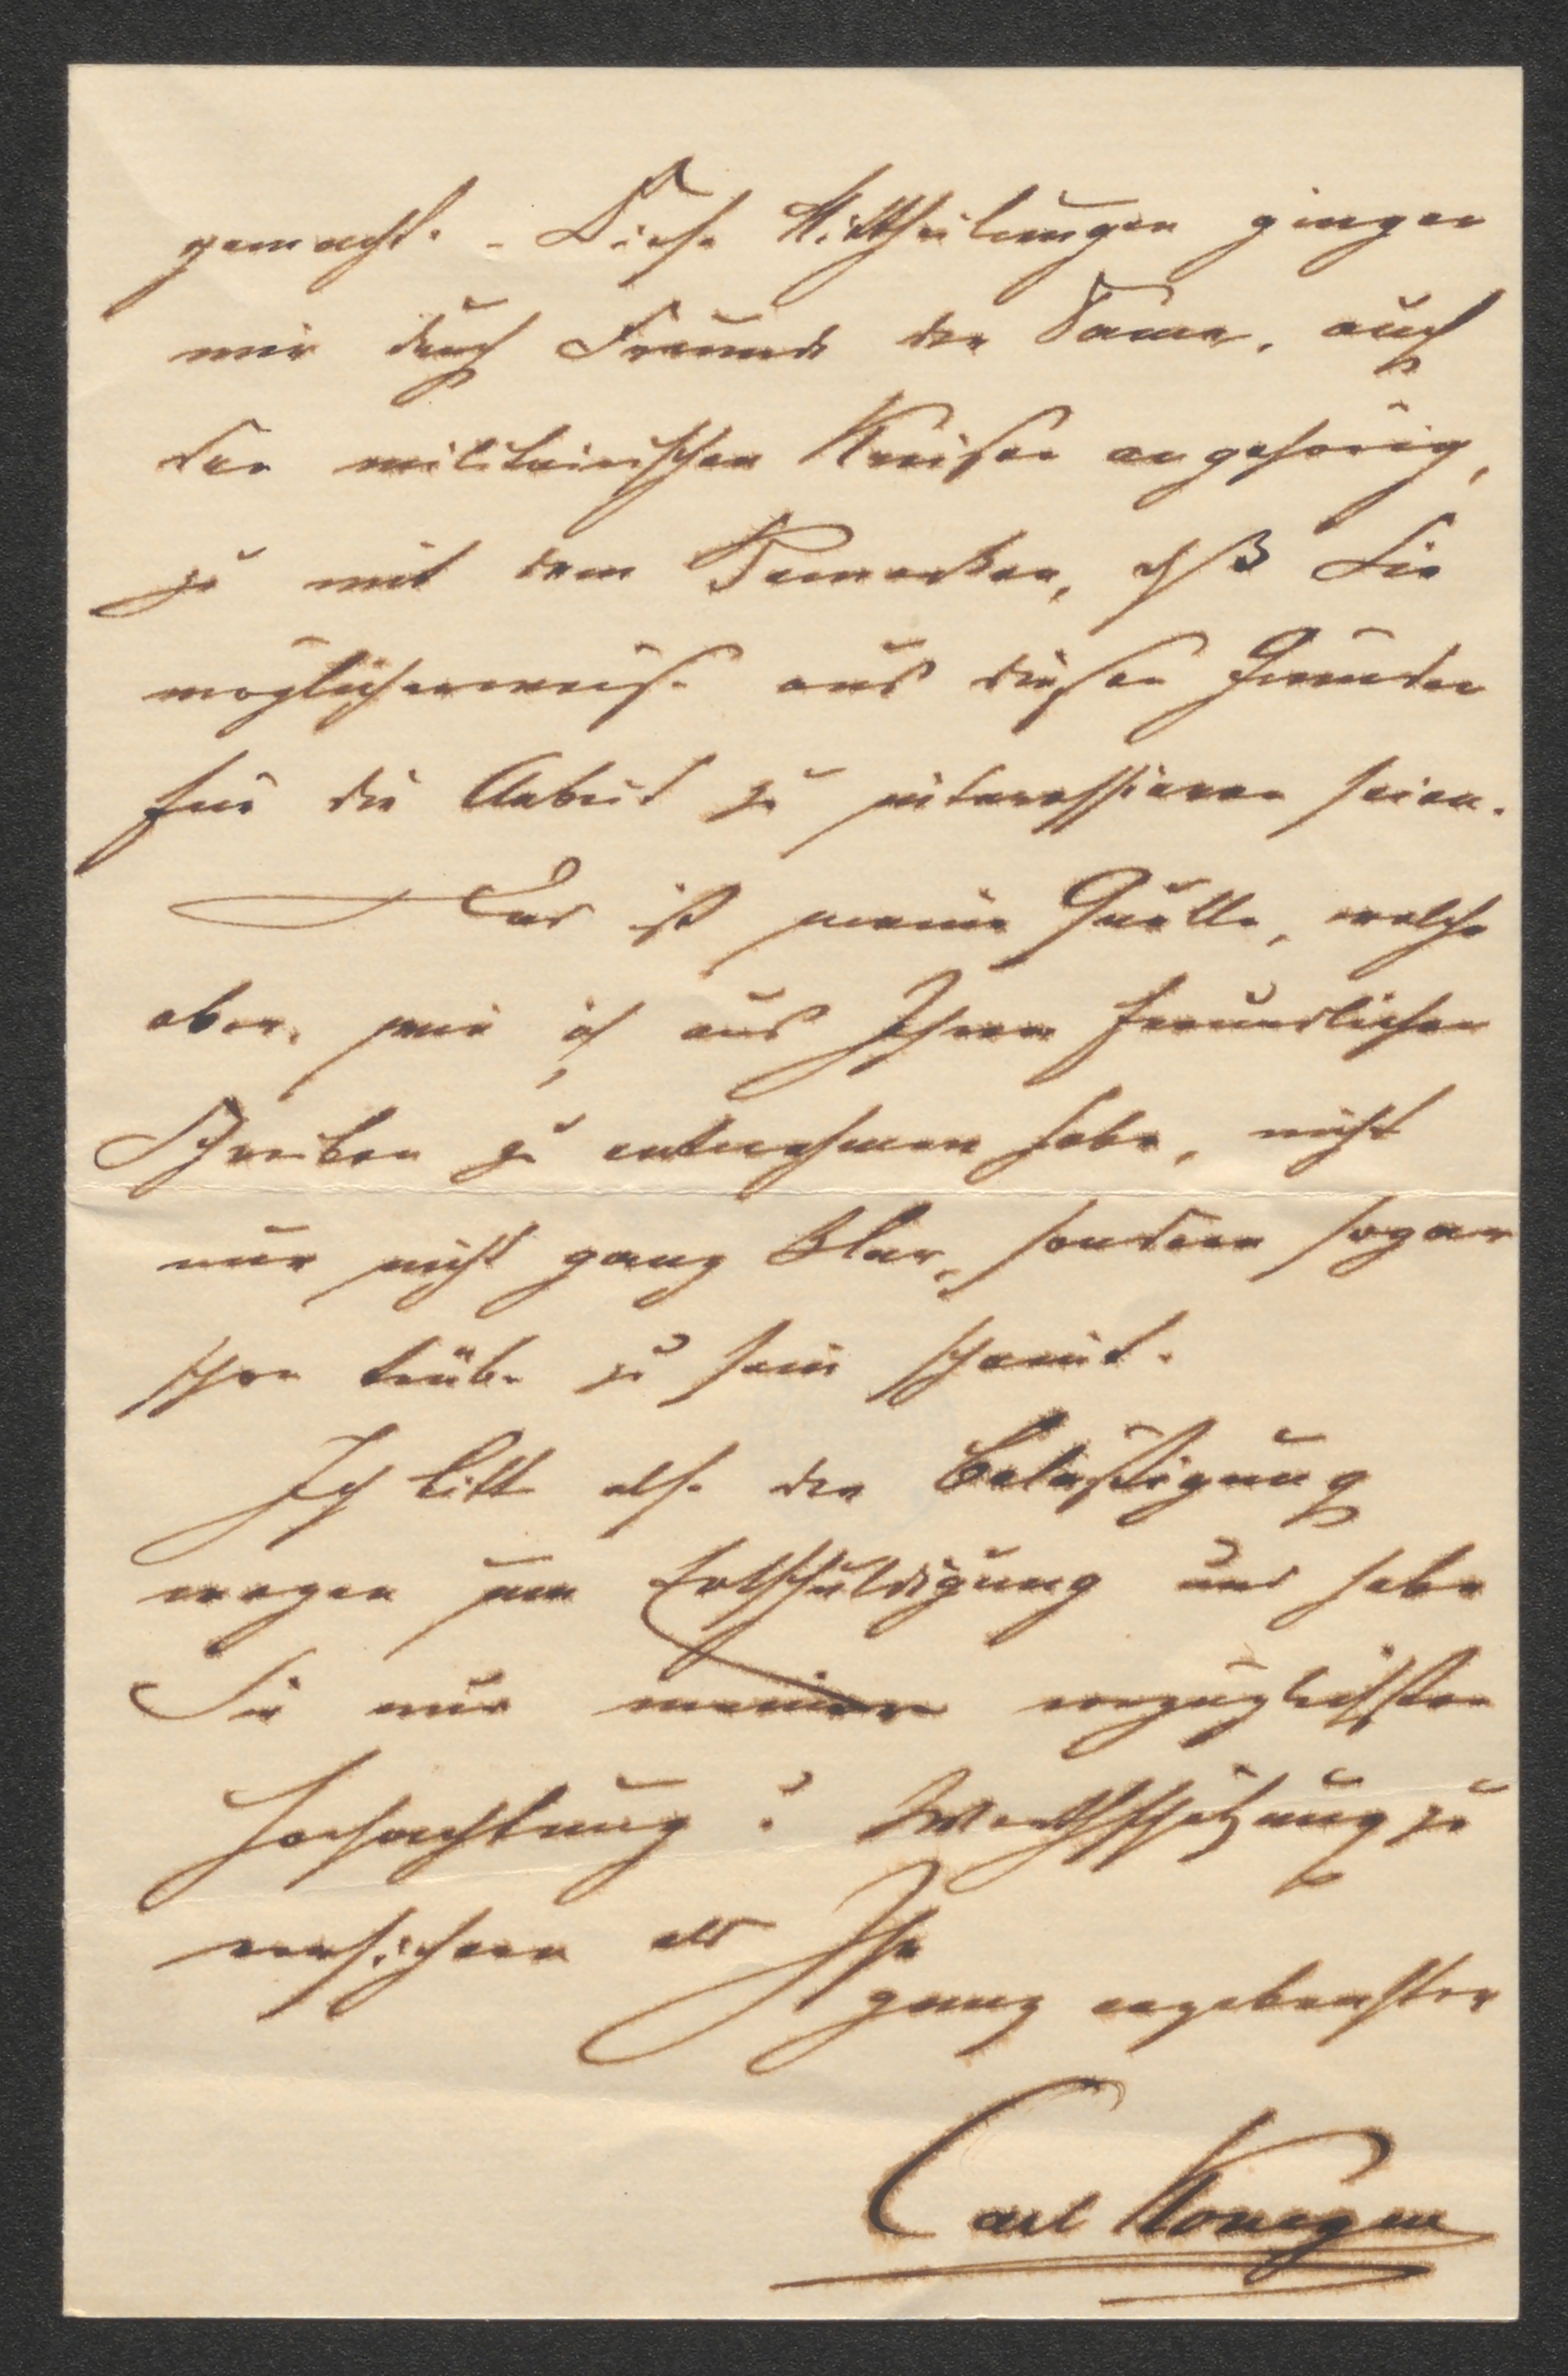 gemacht. – Diese Mittheilungen gingen
mir durch Freunde der Dame, auch
den militairischen Kreisen angehörig,
zu mit dem Bemerken, dß Sie
möglicherweise aus diesen Gründen
für die Arbeit zu interessieren seien.
Das ist meine Quelle, welche
aber, wie ich aus Ihrem freundlichen
Schreiben zu entnehmen habe, nicht
nur nicht ganz klar, sondern sogar
schon trübe zu sein scheint.
Ich bitte also der Belästigung
wegen um Entschuldigung und habe
Sie nur meiner vorzüglichsten
Hochachtung u Werthschätzung zu
versichern als Ihr
ganz ergebenster
Carl Konegen